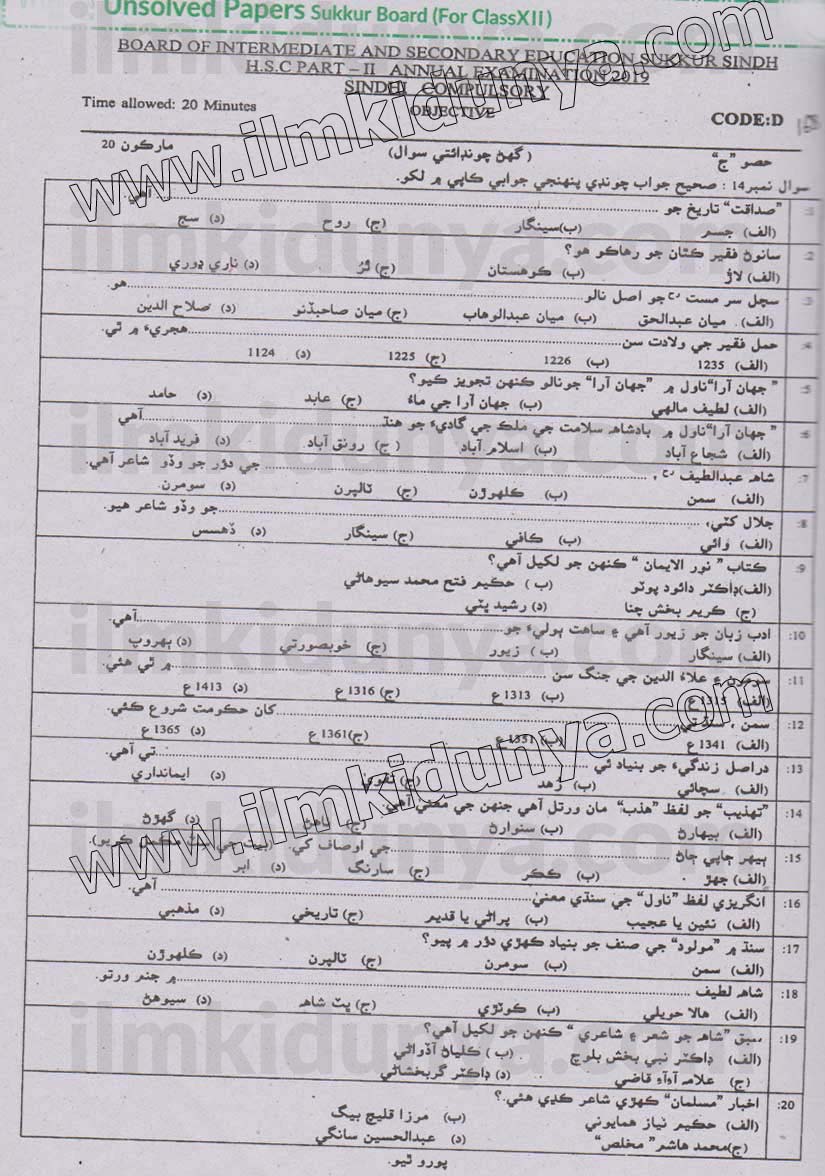 Unsolved Papers Sukkur Board (For ClassXII)
BOARD OF INTERMEDIATE AND SECONDARY EDUCATION SUKKUR SINDH
H.S.C PART – II ANNUAL EXAMINATION 2019
SINDHI COMPULSORY
Time allowed: 20 Minutes OBJECTIVE CODE:D
حصو ”ج“ (گهڻ چونڊائتي سوال) مارڪون 20
سوال نمبر14 : صحيح جواب چونڊي پنهنجي جوابي ڪاپي ۾ لکو.
1: ”صداقت“ تاريخ جو ........ آهي.
(الف) جسم (ب)سينگار (ج) روح (د) سج
2: سانوڻ فقير ڪٿان جو رهاڪو هو؟
(الف) لاڙ (ب) ڪوهستان (ج) ٿر (د) ناري ڍوري
3: سچل سر مست رح جو اصل نالو ........ هو.
(الف) ميان عبدالحق (ب) ميان عبدالوهاب (ج) ميان صاحبڏنو (د) صلاح الدين
4: حمل فقير جي ولادت سن ........ هجريءَ ۾ ٿي.
(الف) 1235 (ب) 1226 (ج) 1225 (د) 1124
5: ”جهان آرا“ناول ۾ ”جهان آرا“ جونالو ڪنهن تجويز ڪيو؟
(الف) لطيف مالهي (ب) جهان آرا جي ماءُ (ج) عابد (د) حامد
6: ”جهان آرا“ناول ۾ بادشاهه سلامت جي ملڪ جي گاديءَ جو هنڌ ........ آهي
(الف) شجاع آباد (ب) اسلام آباد (ج) رونق آباد (د) فريد آباد
7: شاهه عبدالطيف رح، ........ جي دؤر جو وڏو شاعر آهي.
(الف) سمن (ب) ڪلهوڙن (ج) ٽالپرن (د) سومرن
8: جلال کٽي، ........ جو وڏو شاعر هيو.
(الف) وائي (ب) ڪافي (ج) سينگار (د) ڏهسس
9: ڪتاب ” نور الايمان “ ڪنهن جو لکيل آهي؟
(الف)ڊاڪٽر دائود پوٽو (ب) حڪيم فتح محمد سيوهاڻي
(ج) ڪريم بخش چنا (د) رشيد ڀٽي
10: ادب زبان جو زيور آهي ۽ ساهت ٻوليءَ جو ........ آهي.
(الف) سينگار (ب) زيور (ج) خوبصورتي (د) بهروپ
11: سومرن ۽ علاءُ الدين جي جنگ سن ........ ۾ ٿي هئي.
(الف) 1315ع (ب) 1313ع (ج) 1316ع (د) 1413ع
12: سمن ، سنڌ تي، ........ کان حڪومت شروع ڪئي.
(الف) 1341ع (ب) 1351ع (ج)1361ع (د) 1365ع
13: دراصل زندگيءَ جو بنياد ئي ........ تي آهي.
(الف) سچائي (ب) زهد (ج) تقويٰ (د) ايمانداري
14: ”تهذيب“ جو لفظ ”هذب“ مان ورتل آهي جنهن جي معنيٰ آهي
(الف) بيهارڻ (ب) سنوارڻ (ج) ٺاهڻ (د) گهڙڻ
15: ٻيهر ڄاپي ڄاڻ ........ جي اوصاف کي. (بيت جي سٽ مڪمل ڪريو).
(الف) جهڙ (ب) ڪڪر (ج) سارنگ (د) ابر
16: انگريزي لفظ ”ناول“ جي سنڌي معنيٰ ........ آهي.
(الف) نئين يا عجيب (ب) پراڻي يا قديم (ج) تاريخي (د) مذهبي
17: سنڌ ۾ ”مولود“ جي صنف جو بنياد ڪهڙي دؤر ۾ پيو؟
(الف) سمن (ب) سومرن (ج) ٽالپرن (د) ڪلهوڙن
18: شاهه لطيف ........ ۾ جنم ورتو.
(الف) هالا حويلي (ب) ڪوٽڙي (ج) ڀٽ شاهه (د) سيوهڻ
19: سبق ”شاهه جو شعر ۽ شاعري “ ڪنهن جو لکيل آهي؟
(الف) ڊاڪٽر نبي بخش بلوچ (ب) ڪلياڻ آڏواڻي
(ج) علامه آءِ آءِ قاضي (د) ڊاڪٽر گربخشاڻي
20: اخبار ”مسلمان“ ڪهڙي شاعر ڪڍي هئي.؟
(الف) حڪيم نياز همايوني (ب) مرزا قليچ بيگ
(ج)محمد هاشم” مخلص“ (د) عبدالحسين سانگي
پورو ٿيو.
www.ilmkidunya.com
www.ilmkidunya.com
ilmkidunya.com
ilmkidunya.com
ilmkidunya.com
ilmkidunya.com
ilmkidunya.com